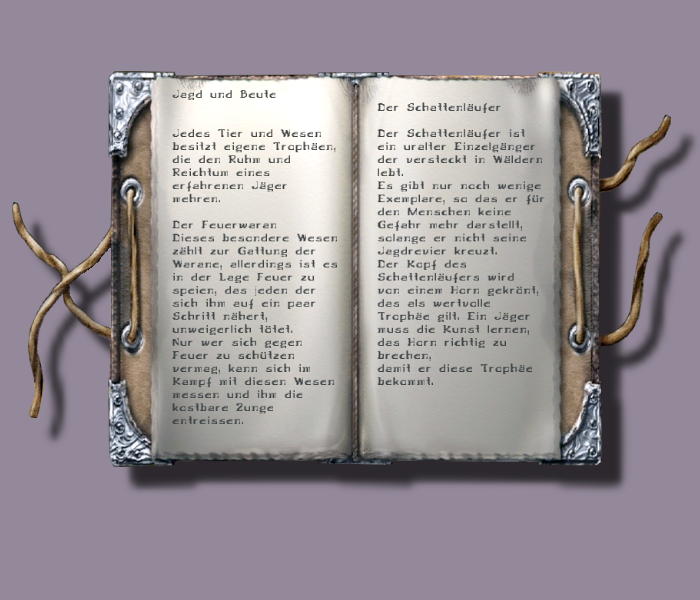 Jagd und Beute
Jedes Tier und Wesen
besitzt eigene Trophäen,
die den Ruhm und
Reichtum eines
erfahrenen Jäger
mehren.
Der Feuerwaran
Dieses besondere Wesen
zählt zur Gattung der
Warane, allerdings ist es
in der Lage Feuer zu
speien, das jeden der
sich ihm auf ein paar
Schritt nähert,
unweigerlich tötet.
Nur wer sich gegen
Feuer zu schützen
vermag, kann sich im
Kampf mit diesen Wesen
messen und ihm die
kostbare Zunge
entreissen.
Der Schattenläufer
Der Schattenläufer ist
ein uralter Einzelgänger
der versteckt in Wäldern
lebt.
Es gibt nur noch wenige
Exemplare, so das er für
den Menschen keine
Gefahr mehr darstellt,
solange er nicht seine
Jagdrevier kreuzt.
Der Kopf des
Schattenläufers wird
von einem Horn gekrönt,
das als wertvolle
Trophäe gilt. Ein Jäger
muss die Kunst lernen,
das Horn richtig zu
brechen,
damit er diese Trophäe
bekommt.